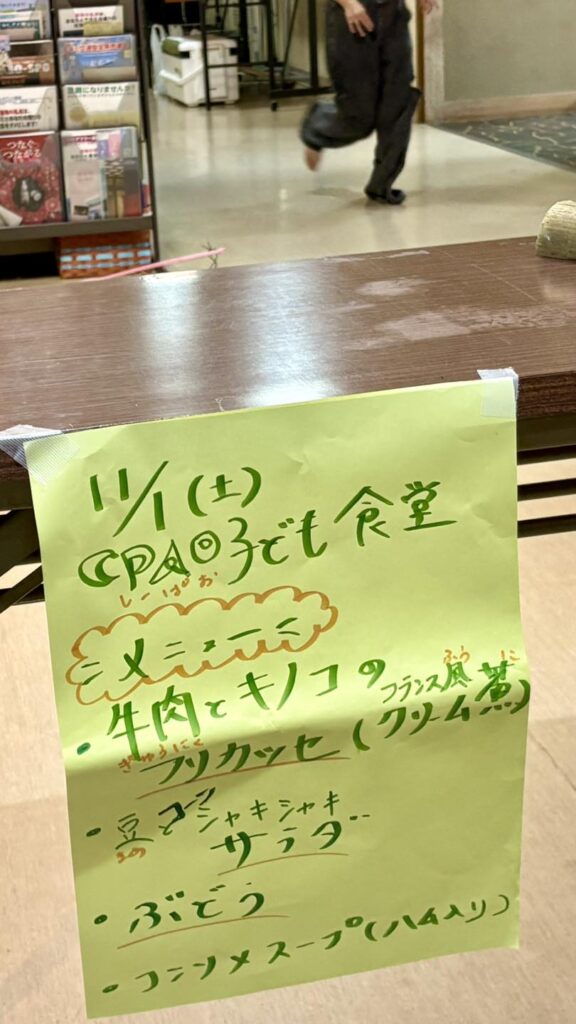 つなぐ
つながる
11/1(土)
CPAO子ども食堂
しーぱお
メニュー
・牛肉とキノコの
ぎゅうにく
フリカッセ(フランス風クリーム煮)
ふう に
・豆とコーンシャキシャキ
まめ
サラダ
・ぶどう
・コンソメスープ(ハム入り)